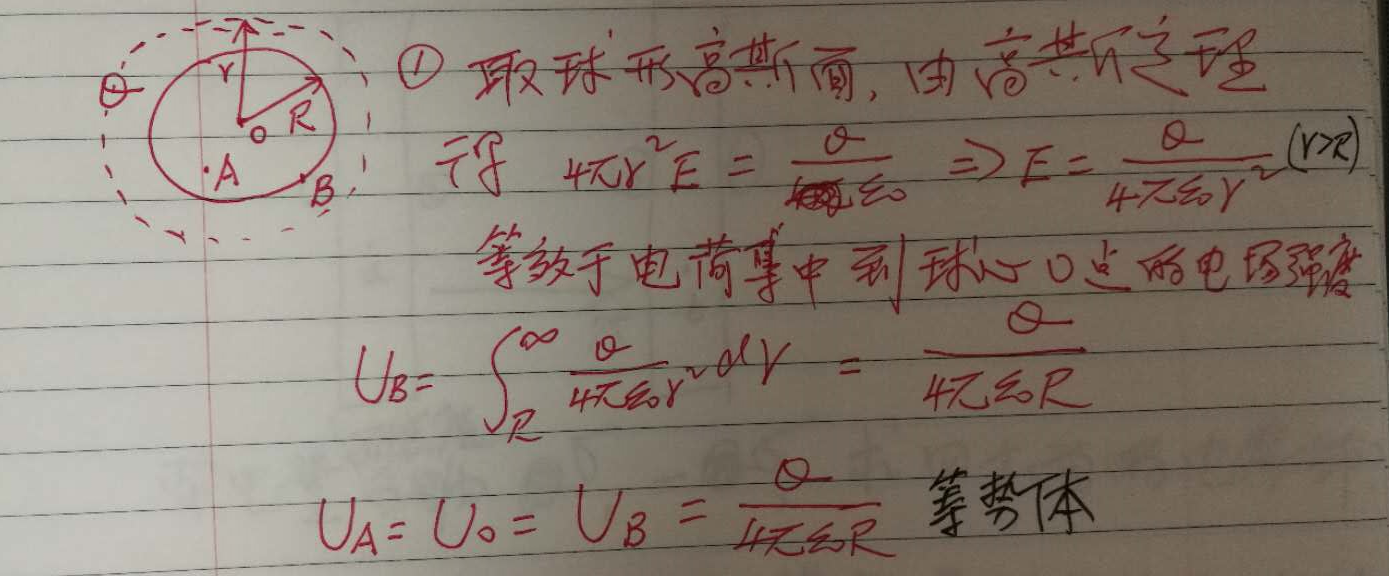 Q r R O A B
① 取球形高斯面,由高斯定理
得 4πr²E = Q/ε₀ => E = Q/4πε₀r² (r>R)
等效于电荷集中到球心O点的电场强度
U_B = ∫_R^∞ Q/4πε₀r² dr = Q/4πε₀R
U_A = U₀ = U_B = Q/4πε₀R 等势体